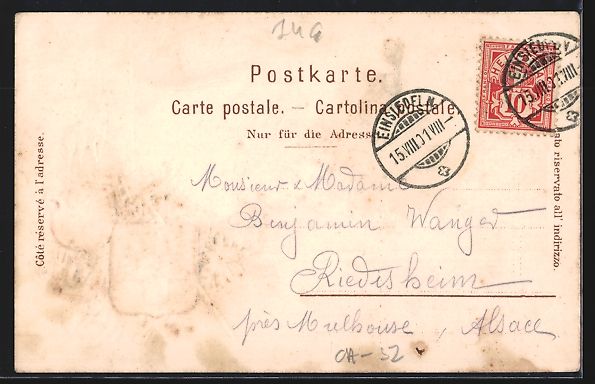 Postkarte.
Carte postale. — Cartolina postale.
Nur für die Adresse
Côté réservé à l'adresse.
lato riservato all' indirizzo.
EINSIEDELN
15.VIII.01.VIII-
HELVETIA
10
EINSIEDELN
15.VIII.01.VIII-
Monsieur & Madame
Benjamin Wanger
Riedisheim
près Mulhouse, Alsace
OA-52